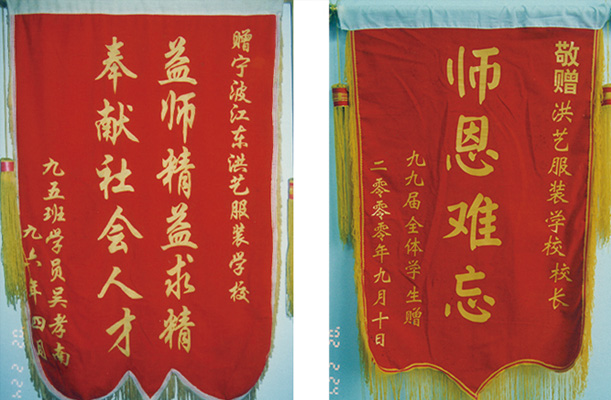 赠宁波江东洪艺服装学校
益师精益求精
奉献社会人才
九五班学员吴孝南
九六年四月
敬赠洪艺服装学校校长
师恩难忘
九九届全体学生赠
二零零零年九月十日